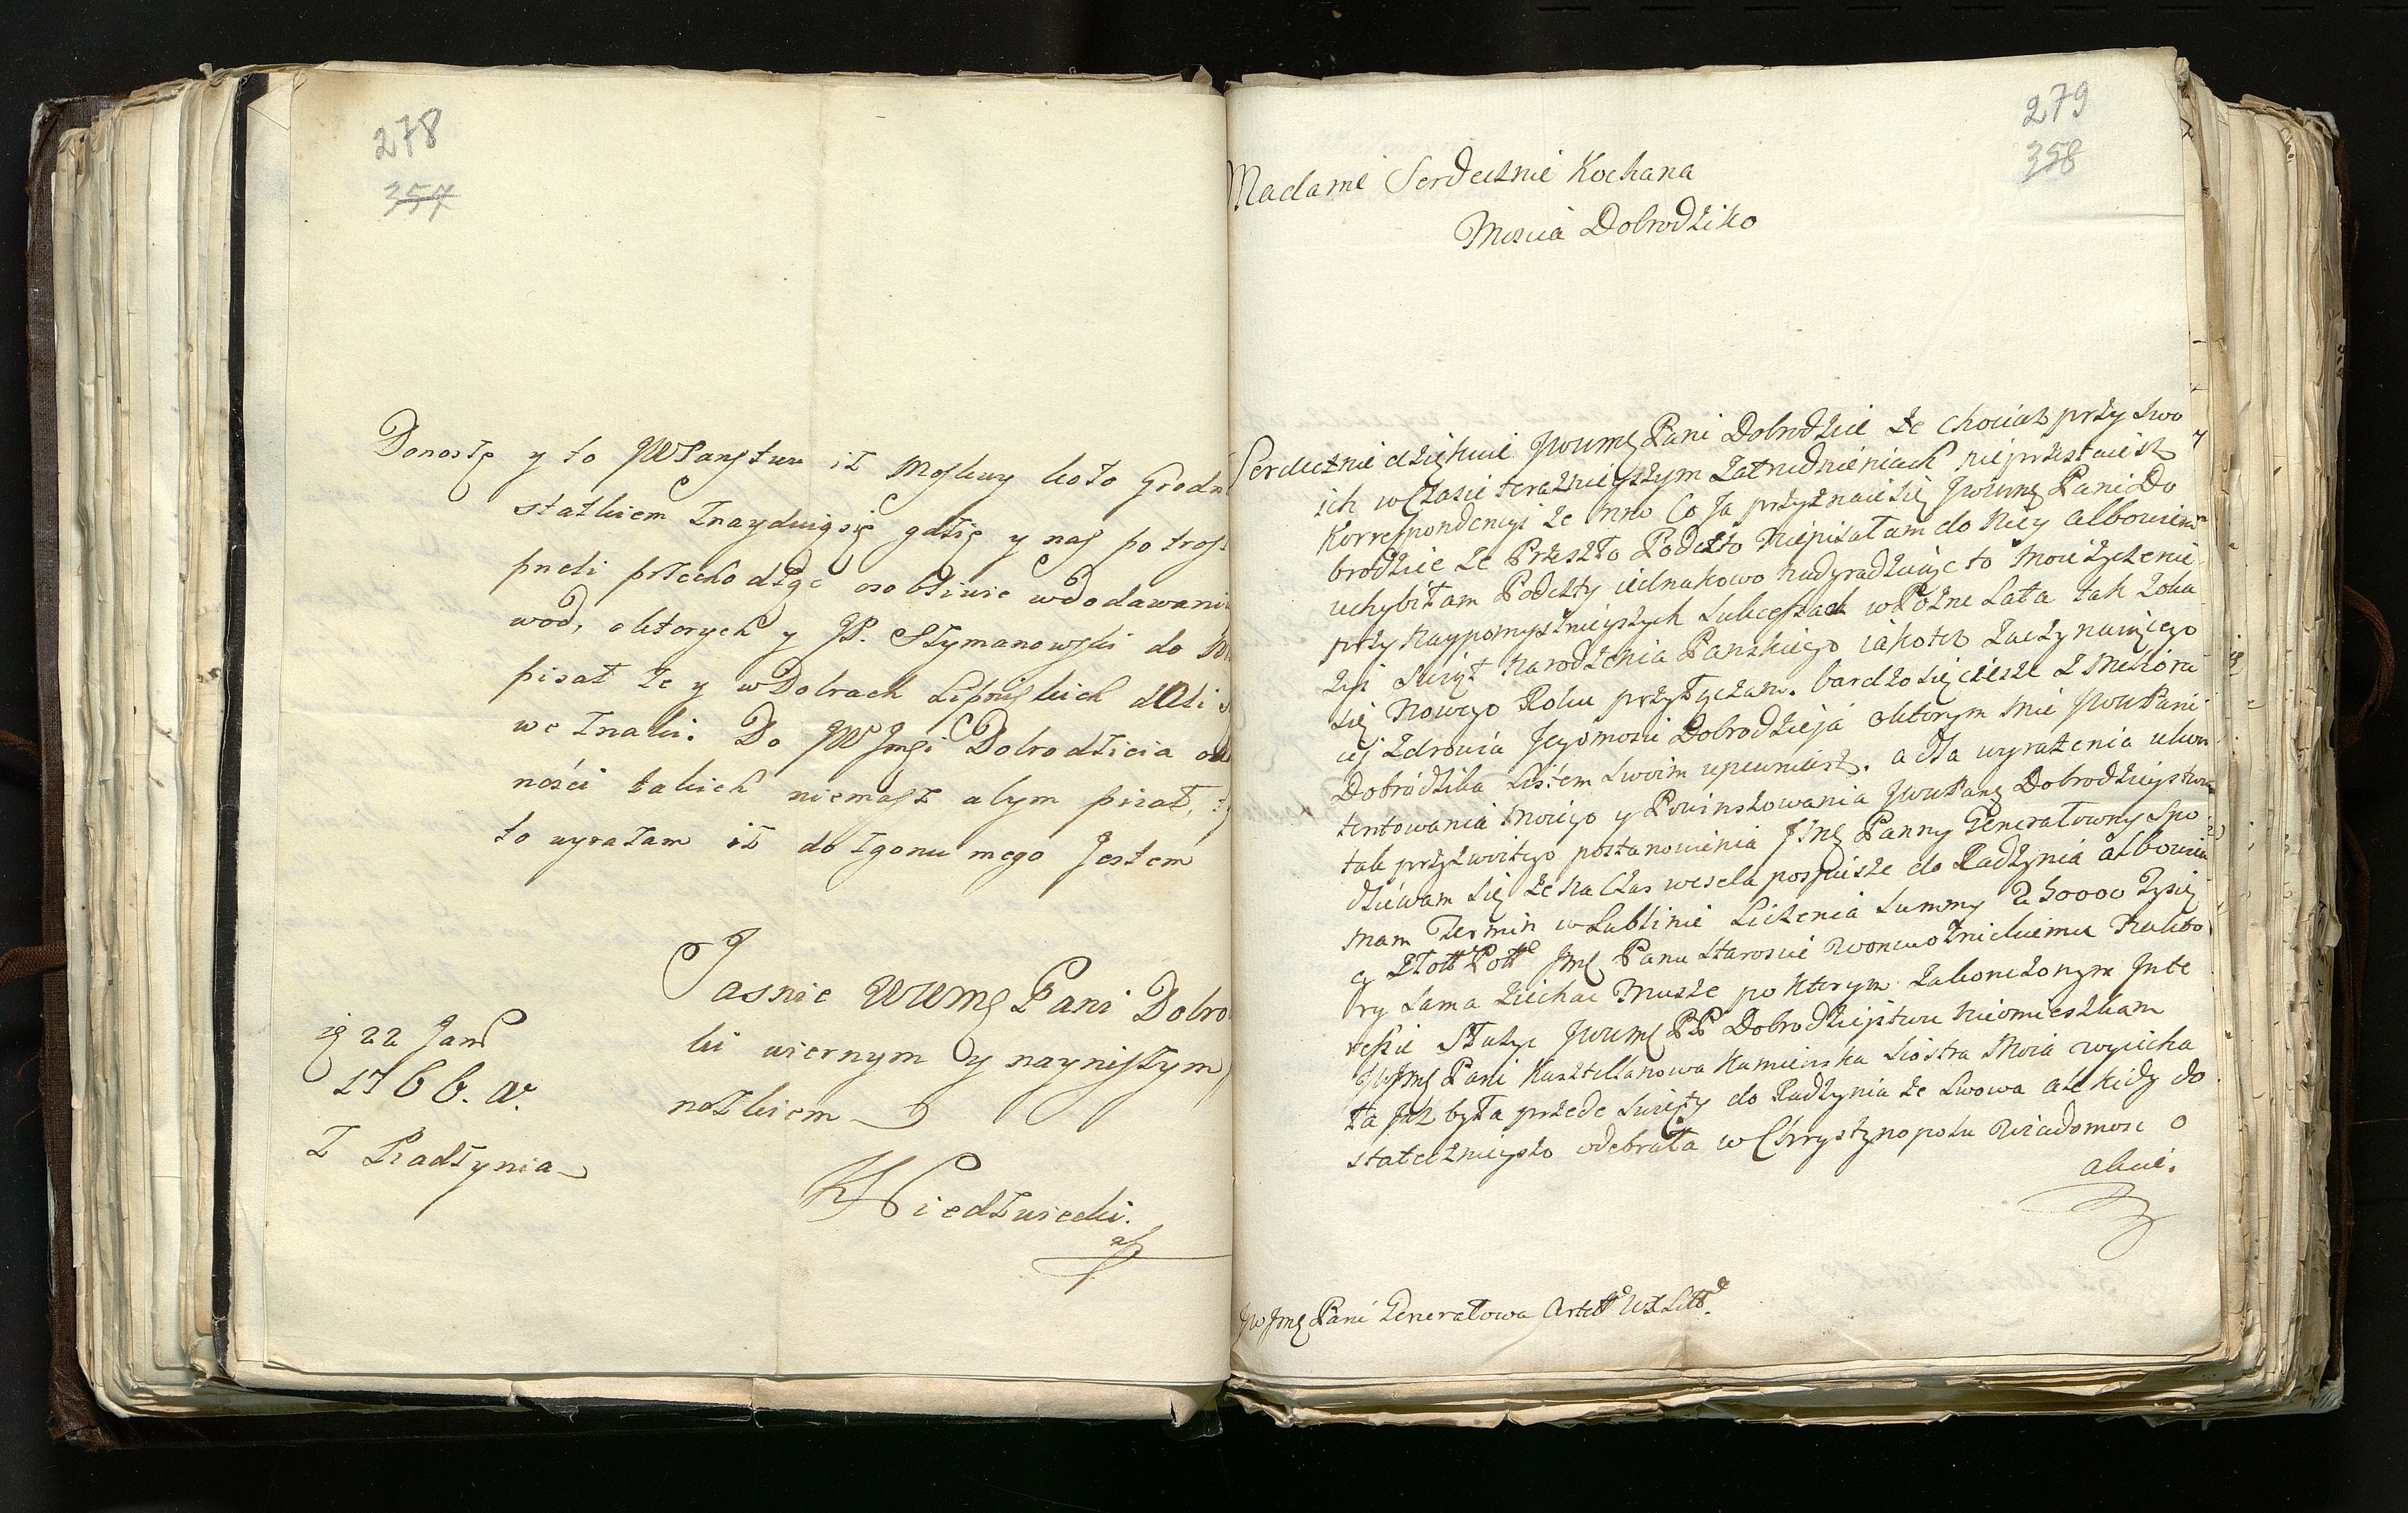 278
357
Donoszę y to JWPanstwu iz Moskwy koło Grodn
statkiem znayduią się gdzie y nas potrosz
pneli przechodząc osobliwie w dodawani
wod, o ktorych y JP. Szymanowski do
pisał że y w Dobrach Lipskich dali
we znaki. Do JW Jmci Dobrodzieia
ności takich niemasz abym pisał,
to wyrażam iż do zgonu mego Jestem
Jasnie WWMę Pani Dobro
ki wiernym y nayniższym
nożkiem
22 Jan
1766. a.
z Radzynia
Niedzwiecki.
279
358
Madame Serdecznie Kochana
Moscia Dobrodziko
Serdecznie dziękuie JWWMę Pani Dobrodzice że chociaz przy swo
ich w czasie teraznieyszym zatrudnieniach nieprzestaiesz
Korrespondencyi ze mno Co Ja przyznaie się JWWMę Pani Do
brodzice że Przeszło Poczto niepisałam do Niey albowiem
uchybiłam Poczty iednakowo nadgradzaiąc to moie życzenie
przy naypomyslnieyszych sukcessach w Pozne Lata tak zoka
zyi Swiąt Narodzenia Panskiego iakotez zaczynaiącego
się Nowego Roku przyłyczam. bardzo się ciesze z
iej zdrowia Jegomosci Dobrodzieja o ktorym mie JWWPani
Dobrodzika Listem swoim upewniasz. a dla wyrazenia ukon
tentowania moiego y Powinszowania JWWPanę Dobrodzieystwu
tak przyzwoitego postanowienia JJmę Panny Generałowny Spo
dziewam się że na czas wesela pospiesze do Radzynia albowiem
mam Termin w Lublinie Liczenia Summy 50000 Tysię
cy Złott Poll Jmę Panu Staroscie Zwonowoznickiemu Nakto
ry sama ziechac musze po ktorym zakonczonym Inte
ressie Służyc JWWMę PP Dobrodziejstwu nieomieszkam
JWJmę Pani Kasztellanowa Kaminska Siostra Moia wyiecha
ła juz była przede Swięty do Radzynia ze Lwowa ale kidy do
stateczniejszo odebrała w Chrystynopolu wiadomosc o
akcie.
JWJmę Pani Generałowa Artell WXLitt.